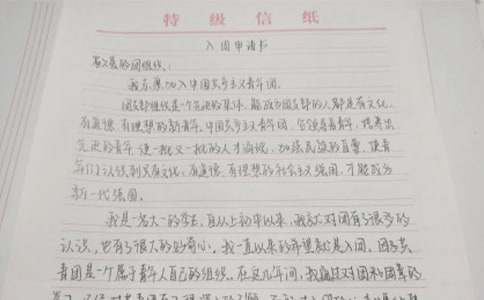 特级信纸
入团申请书
的团组织：
我志愿加入中国共产主义青年团。
团支部组织是一个先进的集体，能成为团支部的人都是有文化、
有道德、有理想的新青年。中国共产主义青年团，
先进的青年，使一批又一批的人才涌现，加强民族的自尊，使青
年们认识到只有文化、有道德、有理想的社会主义强国，才能成为
新一代强国。
我是一名大一的学生，自从上初中以来，我就对团有了很多的
认识，也有了很大的好奇心。我一直以来的希望就是入团，
青团是一个属于青年人自己的组织。在这几年间，我对团和团章的